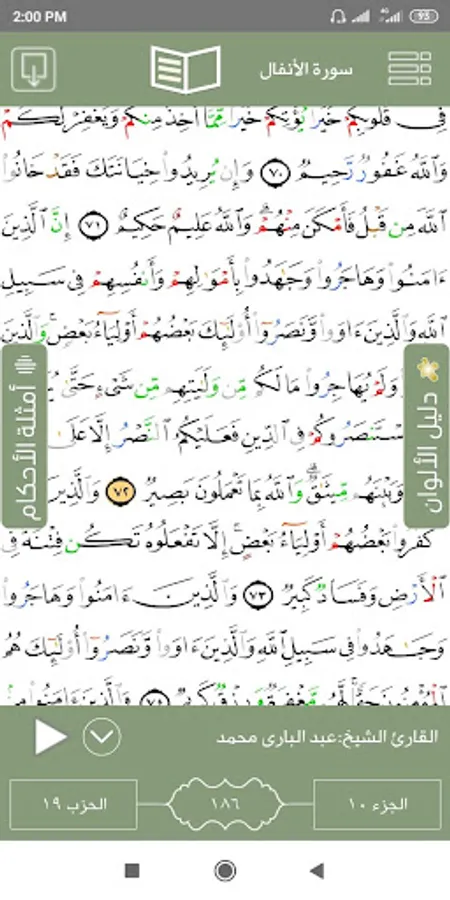 2:00 PM
4G
93
سورة الأنفال
فِى قُلُوبِكُمْ خَيْرًا يُؤْتِكُمْ خَيْرًا مِّمَّآ أُخِذَ مِنكُمْ وَيَغْفِرْ لَكُمْ
وَٱللَّهُ غَفُورٌ رَّحِيمٌ ٧٠ وَإِن يُرِيدُوا۟ خِيَانَتَكَ فَقَدْ خَانُوا۟
ٱللَّهَ مِن قَبْلُ فَأَمْكَنَ مِنْهُمْ ۗ وَٱللَّهُ عَلِيمٌ حَكِيمٌ ٧١ إِنَّ ٱلَّذِينَ
ءَامَنُوا۟ وَهَاجَرُوا۟ وَجَٰهَدُوا۟ بِأَمْوَٰلِهِمْ وَأَنفُسِهِمْ فِى سَبِيلِ
ٱللَّهِ وَٱلَّذِينَ ءَاوَوا۟ وَّنَصَرُوٓا۟ أُو۟لَٰٓئِكَ بَعْضُهُمْ أَوْلِيَآءُ بَعْضٍ ۚ وَٱلَّذِينَ
وَلَمْ يُهَاجِرُوا۟ مَا لَكُم مِّن وَلَٰيَتِهِم مِّن شَىْءٍ حَتَّىٰ
سْتَنصَرُوكُمْ فِى ٱلدِّينِ فَعَلَيْكُمُ ٱلنَّصْرُ إِلَّا عَلَىٰ
وَبَيْنَهُم مِّيثَٰقٌ ۗ وَٱللَّهُ بِمَا تَعْمَلُونَ بَصِيرٌ ٧٢ وَٱلَّذِينَ
كَفَرُوا۟ بَعْضُهُمْ أَوْلِيَآءُ بَعْضٍ ۚ إِلَّا تَفْعَلُوهُ تَكُن فِتْنَةٌ فِى
ٱلْأَرْضِ وَفَسَادٌ كَبِيرٌ ٧٣ وَٱلَّذِينَ ءَامَنُوا۟ وَهَاجَرُوا۟
وَجَٰهَدُوا۟ فِى سَبِيلِ ٱللَّهِ وَٱلَّذِينَ ءَاوَوا۟ وَّنَصَرُوٓا۟ أُو۟لَٰٓئِكَ هُمُ
ٱلْمُؤْمِنُونَ حَقًّا ۚ لَّهُم مَّغْفِرَةٌ وَرِزْقٌ كَرِيمٌ ٧٤ وَٱلَّذِينَ ءَامَنُوا۟ مِنۢ
دليل الألوان
أمثلة الأحكام
القارئ الشيخ:عبد البارى محمد
الجزء ١٠
١٨٦
الحزب ١٩